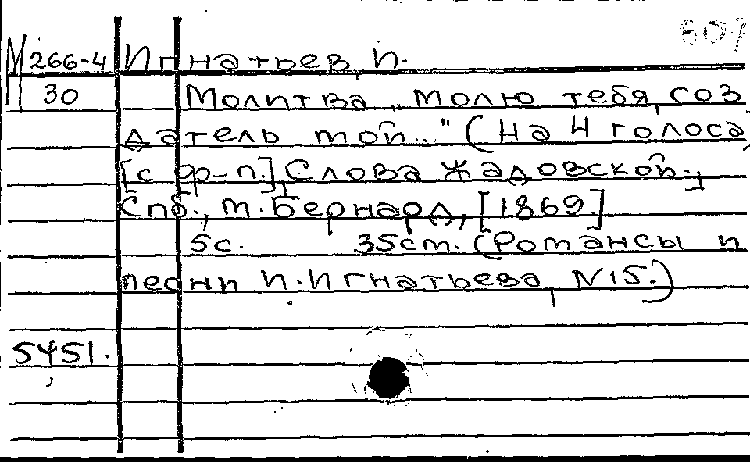 507
М 266-4 Игнатьев, И.
30 Молитва „Молю тебя, соз
датель мой..." (На 4 голоса,
[с ф-п.] Слова Жадовской.]
Спб., М. Бернард, [1869]
5с. 35см. (Романсы и
песни И. Игнатьева, N15.)
5451.